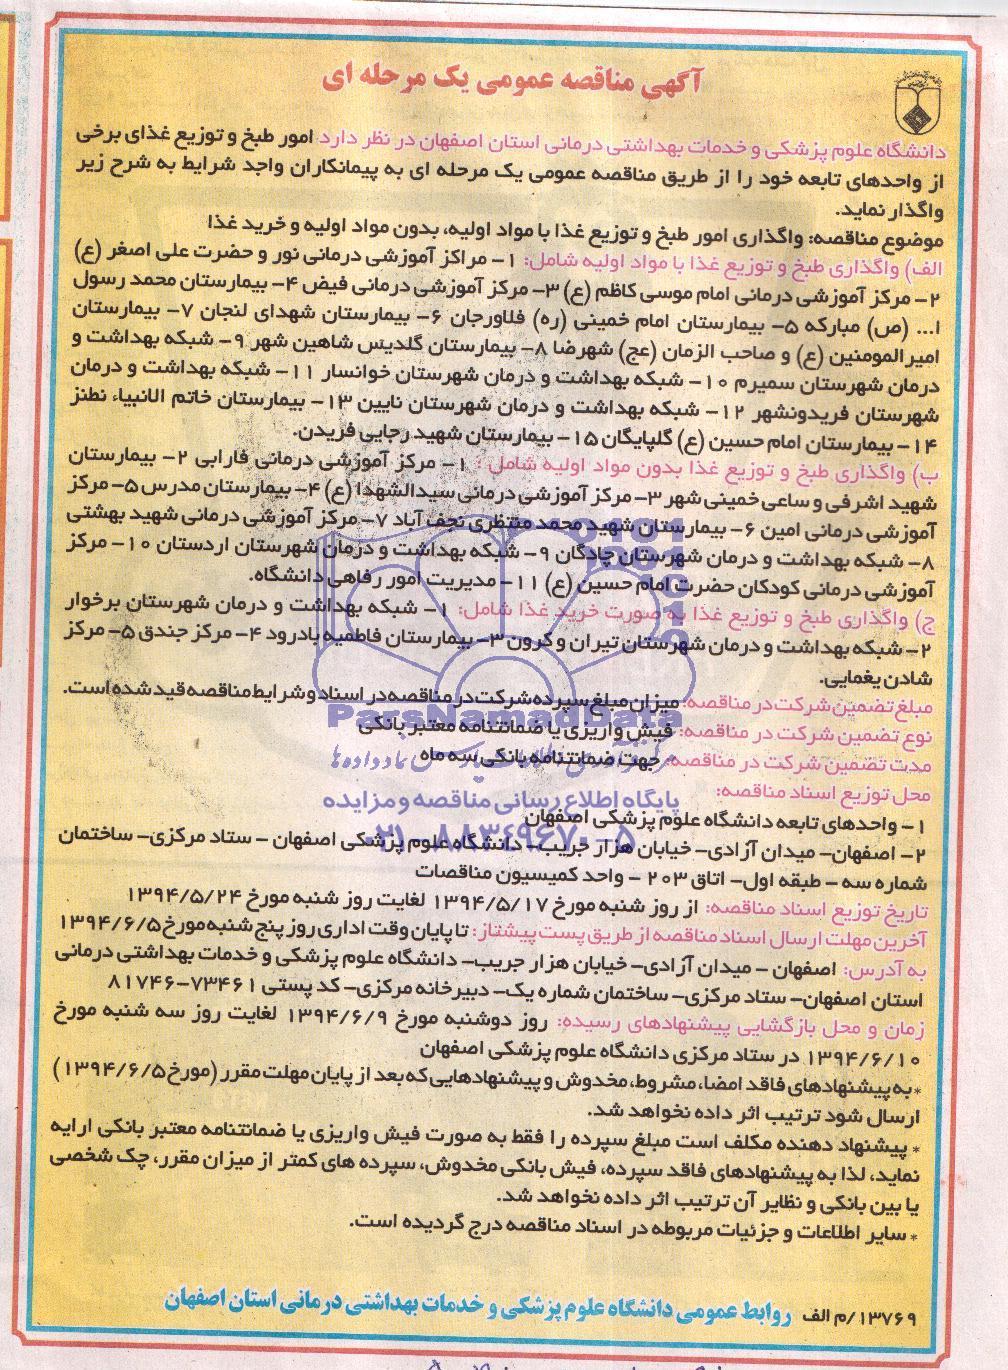 آگهی مناقصه عمومی یک مرحله ای
دانشگاه علوم پزشکی و خدمات بهداشتی درمانی استان اصفهان در نظر دارد امور طبخ و توزیع غذای برخی
از واحدهای تابعه خود را از طریق مناقصه عمومی یک مرحله ای به پیمانکاران واجد شرایط به شرح زیر
واگذار نماید.
موضوع مناقصه: واگذاری امور طبخ و توزیع غذا با مواد اولیه، بدون مواد اولیه و خرید غذا
الف) واگذاری طبخ و توزیع غذا با مواد اولیه شامل: ۱- مراکز آموزشی درمانی نور و حضرت علی اصغر (ع)
۲- مرکز آموزشی درمانی امام موسی کاظم (ع) ۳- مرکز آموزشی درمانی فیض ۴- بیمارستان محمد رسول
ا... (ص) مبارکه ۵- بیمارستان امام خمینی (ره) فلاورجان ۶- بیمارستان شهدای لنجان ۷- بیمارستان
امیرالمومنین (ع) و صاحب الزمان (عج) شهرضا ۸- بیمارستان گلدیس شاهین شهر ۹- شبکه بهداشت و
درمان شهرستان سمیرم ۱۰- شبکه بهداشت و درمان شهرستان خوانسار ۱۱- شبکه بهداشت و درمان
شهرستان فریدونشهر ۱۲- شبکه بهداشت و درمان شهرستان نایین ۱۳- بیمارستان خاتم الانبیاء نطنز
۱۴- بیمارستان امام حسین (ع) گلپایگان ۱۵- بیمارستان شهید رجایی فریدن.
ب) واگذاری طبخ و توزیع غذا بدون مواد اولیه شامل: ۱- مرکز آموزشی درمانی فارابی ۲- بیمارستان
شهید اشرفی و ساعی خمینی شهر ۳- مرکز آموزشی درمانی سیدالشهدا (ع) ۴- بیمارستان مدرس ۵- مرکز
آموزشی درمانی امین ۶- بیمارستان شهید محمد منتظری نجف آباد ۷- مرکز آموزشی درمانی شهید بهشتی
۸- شبکه بهداشت و درمان شهرستان چادگان ۹- شبکه بهداشت و درمان شهرستان اردستان ۱۰- مرکز
آموزشی درمانی کودکان حضرت امام حسین (ع) ۱۱- مدیریت امور رفاهی دانشگاه.
ج) واگذاری طبخ و توزیع غذا به صورت خرید غذا شامل: ۱- شبکه بهداشت و درمان شهرستان برخوار
۲- شبکه بهداشت و درمان شهرستان تیران و کرون ۳- بیمارستان فاطمیه بادرود ۴- مرکز جندق ۵- مرکز
شادن یغمایی.
مبلغ تضمین شرکت در مناقصه: میزان مبلغ سپرده شرکت در مناقصه در اسناد و شرایط مناقصه قید شده است.
ParsNamadData
نوع تضمین شرکت در مناقصه: فیش واریزی یا ضمانتنامه معتبر بانکی
مدت تضمین شرکت در مناقصه: جهت ضمانتنامه بانکی سه ماه
محل توزیع اسناد مناقصه:
پایگاه اطلاع رسانی مناقصه و مزایده
۱- واحدهای تابعه دانشگاه علوم پزشکی اصفهان
۰۲۱-۸۸۳۴۹۶۷۰-۵
۲- اصفهان- میدان آزادی- خیابان هزار جریب- دانشگاه علوم پزشکی اصفهان - ستاد مرکزی- ساختمان
شماره سه - طبقه اول- اتاق ۲۰۳ - واحد کمیسیون مناقصات
تاریخ توزیع اسناد مناقصه: از روز شنبه مورخ ۱۳۹۴/۵/۱۷ لغایت روز شنبه مورخ ۱۳۹۴/۵/۲۴
آخرین مهلت ارسال اسناد مناقصه از طریق پست پیشتاز: تا پایان وقت اداری روز پنج شنبه مورخ ۱۳۹۴/۶/۵
به آدرس: اصفهان - میدان آزادی- خیابان هزار جریب- دانشگاه علوم پزشکی و خدمات بهداشتی درمانی
استان اصفهان- ستاد مرکزی- ساختمان شماره یک- دبیرخانه مرکزی- کد پستی ۷۳۴۶۱-۸۱۷۴۶
زمان و محل بازگشایی پیشنهادهای رسیده: روز دوشنبه مورخ ۱۳۹۴/۶/۹ لغایت روز سه شنبه مورخ
۱۳۹۴/۶/۱۰ در ستاد مرکزی دانشگاه علوم پزشکی اصفهان
*به پیشنهادهای فاقد امضا، مشروط، مخدوش و پیشنهادهایی که بعد از پایان مهلت مقرر (مورخ ۱۳۹۴/۶/۵)
ارسال شود ترتیب اثر داده نخواهد شد.
* پیشنهاد دهنده مکلف است مبلغ سپرده را فقط به صورت فیش واریزی یا ضمانتنامه معتبر بانکی ارایه
نماید، لذا به پیشنهادهای فاقد سپرده، فیش بانکی مخدوش، سپرده های کمتر از میزان مقرر، چک شخصی
یا بین بانکی و نظایر آن ترتیب اثر داده نخواهد شد.
* سایر اطلاعات و جزئیات مربوطه در اسناد مناقصه درج گردیده است.
۱۳۷۶۹/م الف روابط عمومی دانشگاه علوم پزشکی و خدمات بهداشتی درمانی استان اصفهان